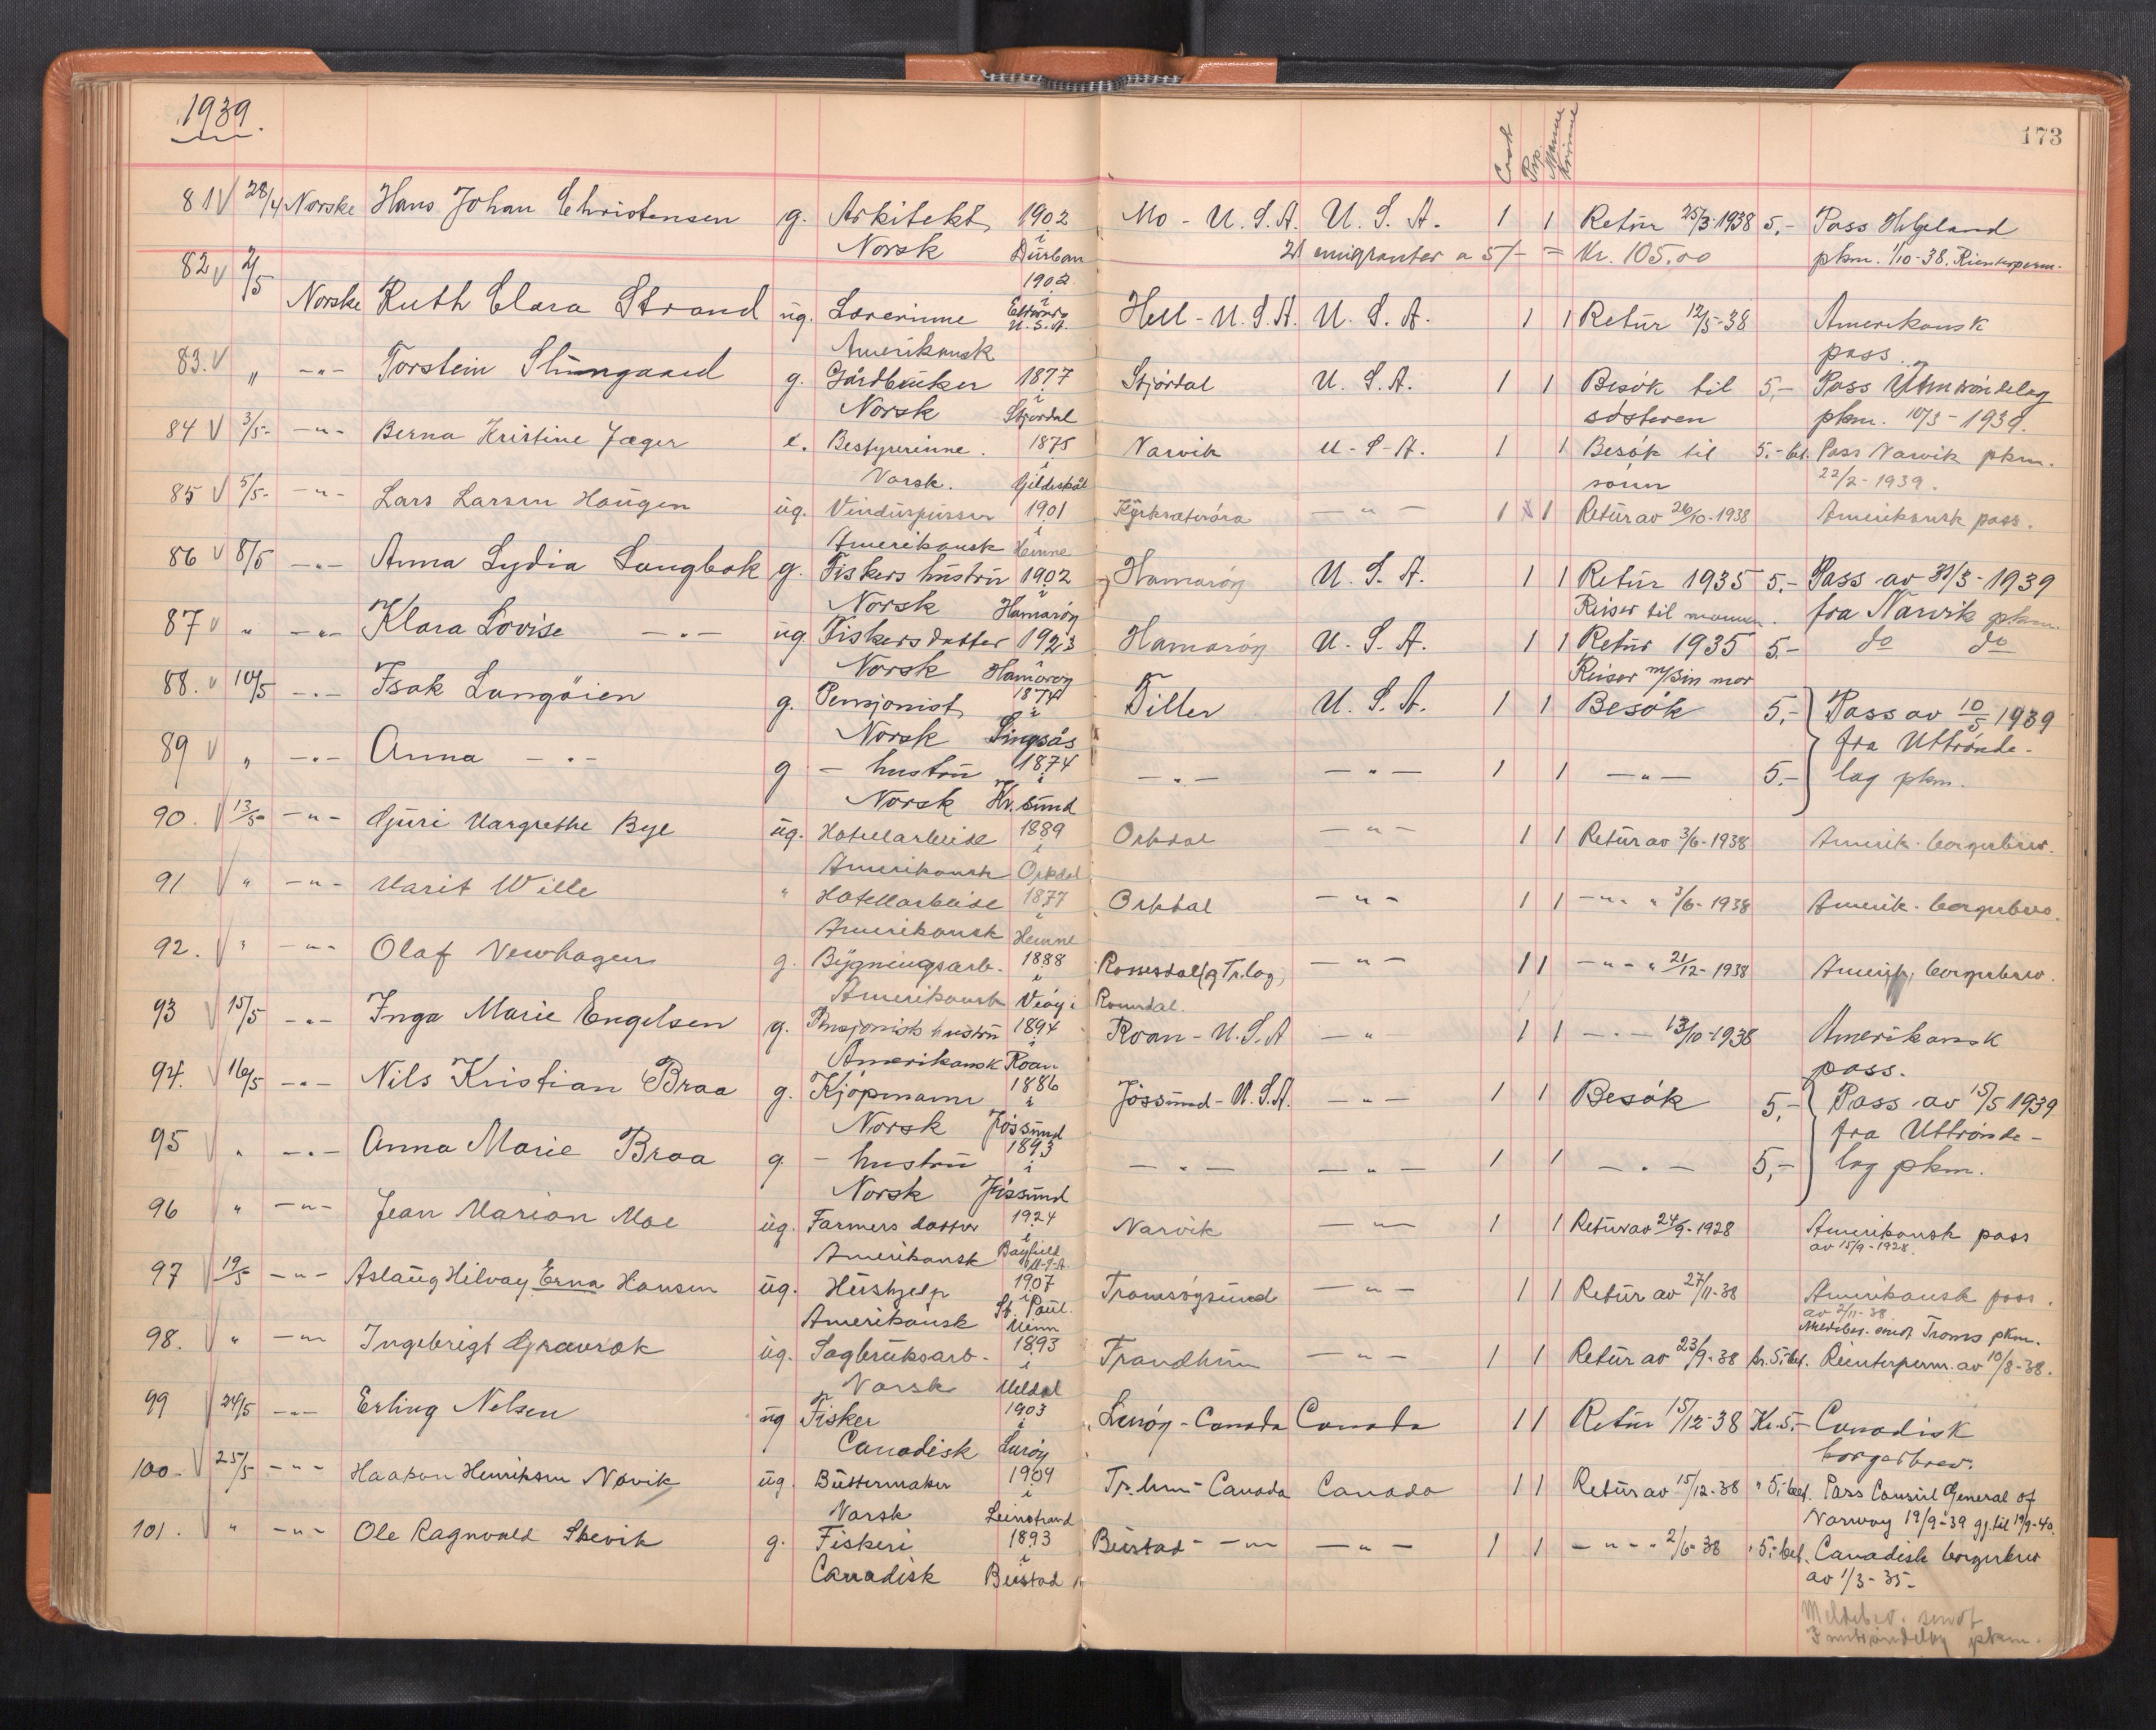 1939.
173
Cash Prp. Menn Kvinne
81 V 28/4 Norske Hans Johan Christensen g. Arkitekt, 1902 Mo - U.S.A. U.S.A. 1 1 Retur 25/3-1938 5,- Pass Helgeland
Norsk i Durban 21 emigranter a 5/- = Kr. 105.00 pkm. 1/10-38.
82 V 2/5 Norske Ruth Clara Strand ug. Lærerinne 1902 i U.S.A. Hell - U.S.A. U.S.A. 1 1 Retur 12/5-38 Amerikansk
Amerikansk pass.
83. V " -"- Torstein g. Gårdbruker 1877 Stjørdal U.S.A. 1 1 Besøk til 5,- Pass
Norsk i Stjørdal søsteren pkm. 10/3-1939.
84 V 3/5- -"- Berna Kristine Jæger e. Bestyrerinne. 1875 Narvik U-S-A. 1 1 Besøk til 5.- bet. Pass Narvik pkm.
Norsk. i Gildeskål sønn 22/2-1939.
85 V 5/5- -"- Lars Larsen Haugen ug. Vinduspusser 1901 Kyrksæterøra -"- 1 1 Retur av 26/10-1938 Amerikansk pass.
Amerikansk i Hemne
86 V 8/5 -"- Anna Lydia Langbak g. Fiskers hustru 1902 Hamarøy U.S.A. 1 1 Retur 1935 5.- Pass av 31/3-1939
Norsk i Hamarøy Reiser til mannen. fra Narvik pkm.
87 V " -"- Klara Lovise -"- ug. Fiskersdatter 1923 Hamarøy U.S.A. 1 1 Retur 1935 5.- do do
Norsk i Hamarøy Reiser m/sin mor
88. V 10/5 -"- Isak Langøien g. Pensjonist, 1874 Tiller U.S.A. 1 1 Besøk 5,- Pass av 10/5 1939
Norsk i Singsås fra Uttrønde-
89 V " -"- Anna -"- g - hustru 1874 -"- -"- 1 1 -"- 5.- lag pkm.
Norsk i Kr.sund
90. V 13/5- -"- Guri Margrethe Bye ug. Hotellarbeide 1889 Orkdal -"- 1 1 Retur av 3/6-1938 Amerik. borgerbrev.
Amerikansk i Orkdal
91 V " -"- Marit Wille " Hotellarbeide 1877 Orkdal -"- 1 1 -"- " 3/6-1938 Amerik. borgerbrev.
Amerikansk i Hemne
92. V " -"- Olaf Newhagen g. Bygningsarb. 1888 Romsdal(og Tr.lag) -"- 1 1 -"- " 21/12-1938 Amerik. borgerbrev.
Amerikansk i Veøy i Romsdal.
93 V 15/5 -"- Inga Marie Engelsen g. Pensjonists hustru 1894 Roan - U.S.A -"- 1 1 -"- 13/10-1938 Amerikansk
Amerikansk i Roan pass.
94. V 16/5 -"- Nils Kristian Braa g. Kjøpmann 1886 Jøssund - U.S.A. -"- 1 1 Besøk 5,- Pass av 15/5 1939
Norsk i Jøssund fra Uttrønde-
95 V " -"- Anna Marie Braa g - hustru 1893 -"- -"- 1 1 -"- 5,- lag pkm.
Norsk i Jøssund
96 " -"- Jean Marion Moe ug. Farmers datter 1924 Narvik -"- 1 1 Retur av 24/9-1928 Amerikansk pass
Amerikansk i Bayfield U-S-A. av 15/9-1928.
97 V 19/5 -"- Aslaug Hilvay Erna Hansen ug. Hushjelp 1907 Tromsøysund -"- 1 1 Retur av 27/11-38 Amerikansk pass.
Amerikansk i St. Paul. Minn av 2/11-38
Meldebev. sendt Troms pkm.
98. V " -"- Ingebrigt Gravrok ug. Sagbruksarb. 1893 Trondheim -"- 1 1 Retur av 23/9-38 kr. 5,- bet. Reenterperm. av 10/8-38.
Norsk i Meldal
99 V 24/5 -"- Erling Nelsen ug Fisker 1903 Lurøy - Canada Canada 1 1 Retur 15/12-38 Kr. 5.- Canadisk
Canadisk i Lurøy borgerbrev.
100. V 25/5 -"- Haakon Henriksen Novik ug. Buttermaker 1904 Tr.heim - Canada Canada 1 1 Retur av 15/12-38 " 5,- bet. Pass Consul General of
Norsk i Leinstrand Norway 19/9-39 gj. til 19/9-40.
101. V " -"- Ole Ragnvald Skevik g. Fiskeri 1893 Beistad - -"- -"- 1 1 -"- " 2/6-38 " 5,- bet. Canadisk borgerbrev
Canadisk i Beistad av 1/3-35-
Meldebev. sendt
Inntrøndelag pkm.